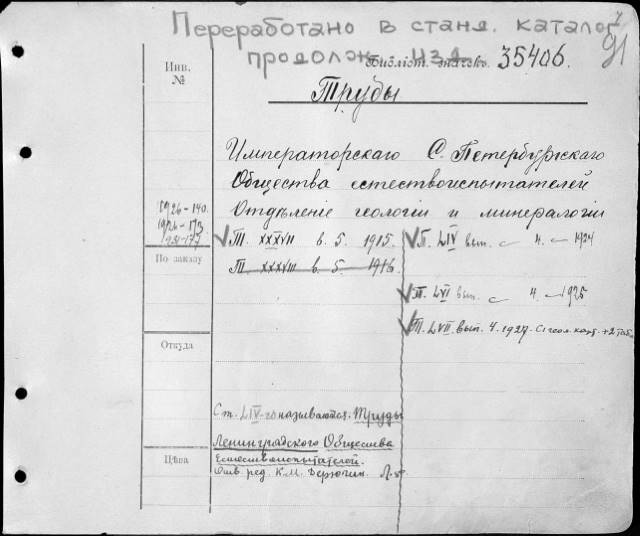 Переработано в станд. каталог
продолж. изд.
91
Библіот. 35406.
Инв.
№
Труды
Императорскаго С. Петербургскаго
Общества естествоиспытателей
Отдѣленіе геологіи и минералогіи
1926-140.
1926-173
По заказу
Т. XXXVII в. 5. 1915.
Т. XXXVIII в. 5. 1916.
Т. LIV вып. 4. 1924
Т. LVI вып. 4. 1925
Т. LVII. вып. 4. 1927. С 1 геол. карт. + 2 таб.
Откуда
Ст. LIV-го называются: Труды
Ленинградского Общества
Естествоиспытателей.
Отв. ред. К.М. Дерюгин.
Цѣна